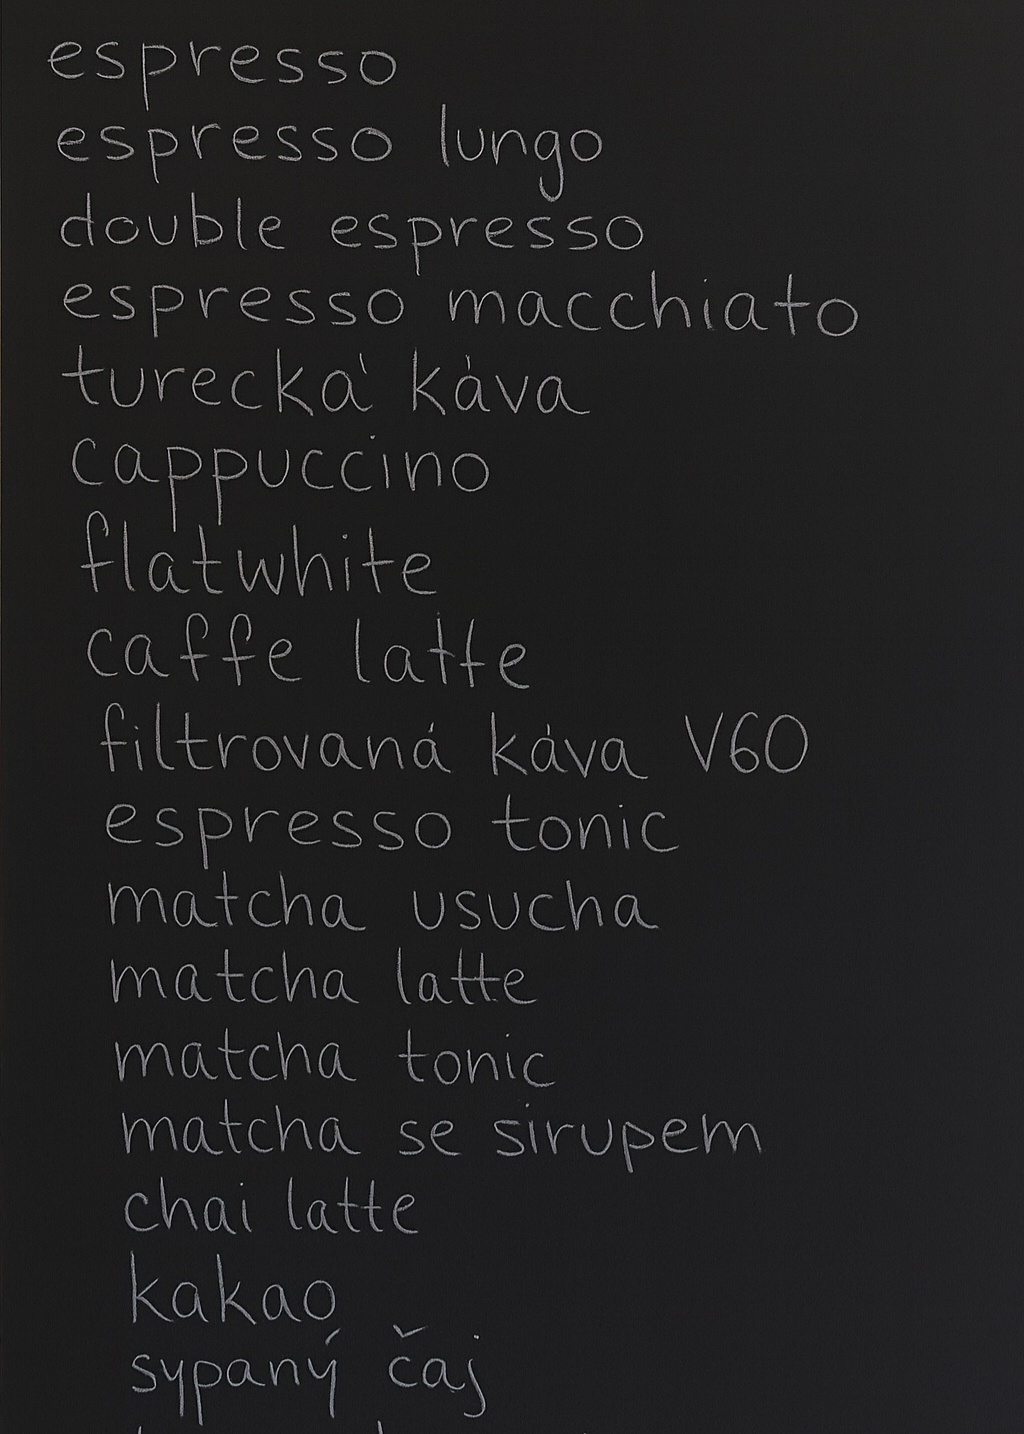 espresso
espresso lungo
double espresso
espresso macchiato
turecká káva
cappuccino
flatwhite
caffe latte
filtrovaná káva V60
espresso tonic
matcha usucha
matcha latte
matcha tonic
matcha se sirupem
chai latte
kakao
sypaný čaj